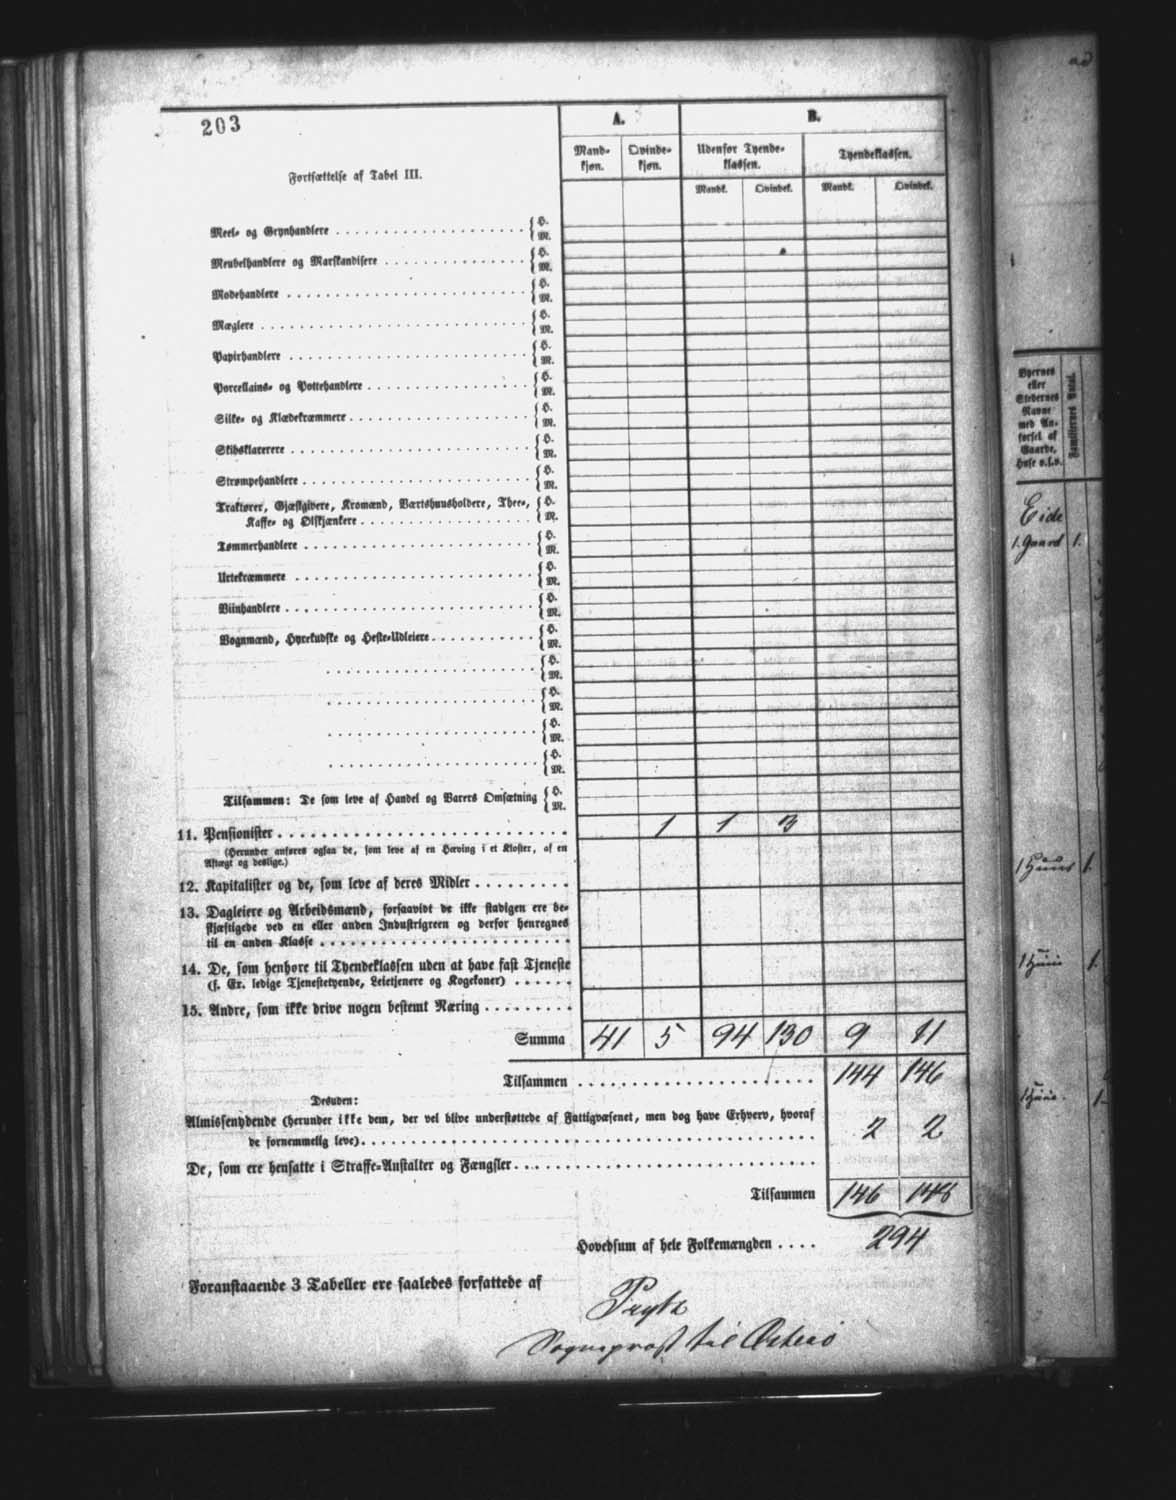 203
Fortsættelse af Tabel III.
A.
B.
Mand-kjøn.
Qvinde-kjøn.
Udenfor Tyende-klassen.
Tyendeklassen.
Mandk. Qvindek. Mandk. Qvindek.
Meel- og Grynhandlere H. M.
Meubelhandlere og Marskandisere H. M.
Modehandlere H. M.
Mæglere H. M.
Papirhandlere H. M.
Porcellains- og Pottehandlere H. M.
Silke- og Klædekræmmere H. M.
Skibsklarerere H. M.
Strømpehandlere H. M.
Traktører, Gjæstgivere, Kromænd, Værtshuusholdere, Thee-,
Kaffe- og Ølskjænkere H. M.
Tømmerhandlere H. M.
Urtekræmmere H. M.
Viinhandlere H. M.
Vognmænd, Hyrekudske og Heste-Udleiere H. M.
H. M.
H. M.
H. M.
H. M.
Tilsammen: De som leve af Handel og Varers Omsætning H. M.
11. Pensionister 1 1 3
(Herunder anføres ogsaa de, som leve af en Hæving i et Kloster, af en
Aftægt og deslige.)
12. Kapitalister og de, som leve af deres Midler
13. Dagleiere og Arbeidsmænd, forsaavidt de ikke stadigen ere be-
skjæftigede ved en eller anden Industrigreen og derfor henregnes
til en anden Klasse
14. De, som henhøre til Tyendeklassen uden at have fast Tjeneste
(f. Ex. ledige Tjenestetyende, Leietjenere og Kogekoner)
15. Andre, som ikke drive nogen bestemt Næring
Summa 41 5 94 130 9 11
Tilsammen 144 146
Desuden:
Almissenydende (herunder ikke dem, der vel blive understøttede af Fattigvæsenet, men dog have Erhverv, hvoraf
de fornemmelig leve) 2 2
De, som ere hensatte i Straffe-Anstalter og Fængsler
Tilsammen 146 148
Hovedsum af hele Folkemængden 294
Foranstaaende 3 Tabeller ere saaledes forfattede af
Sognepræst til Østerø
Byernes
eller
Stedernes
Navne
med An-
førsel af
Gaarde,
Huse o.s.v.
Familiernes Antal.
Eide
1. Gaard 1.
1 Huus 1.
1 Huus 1.
1 Huus. 1.